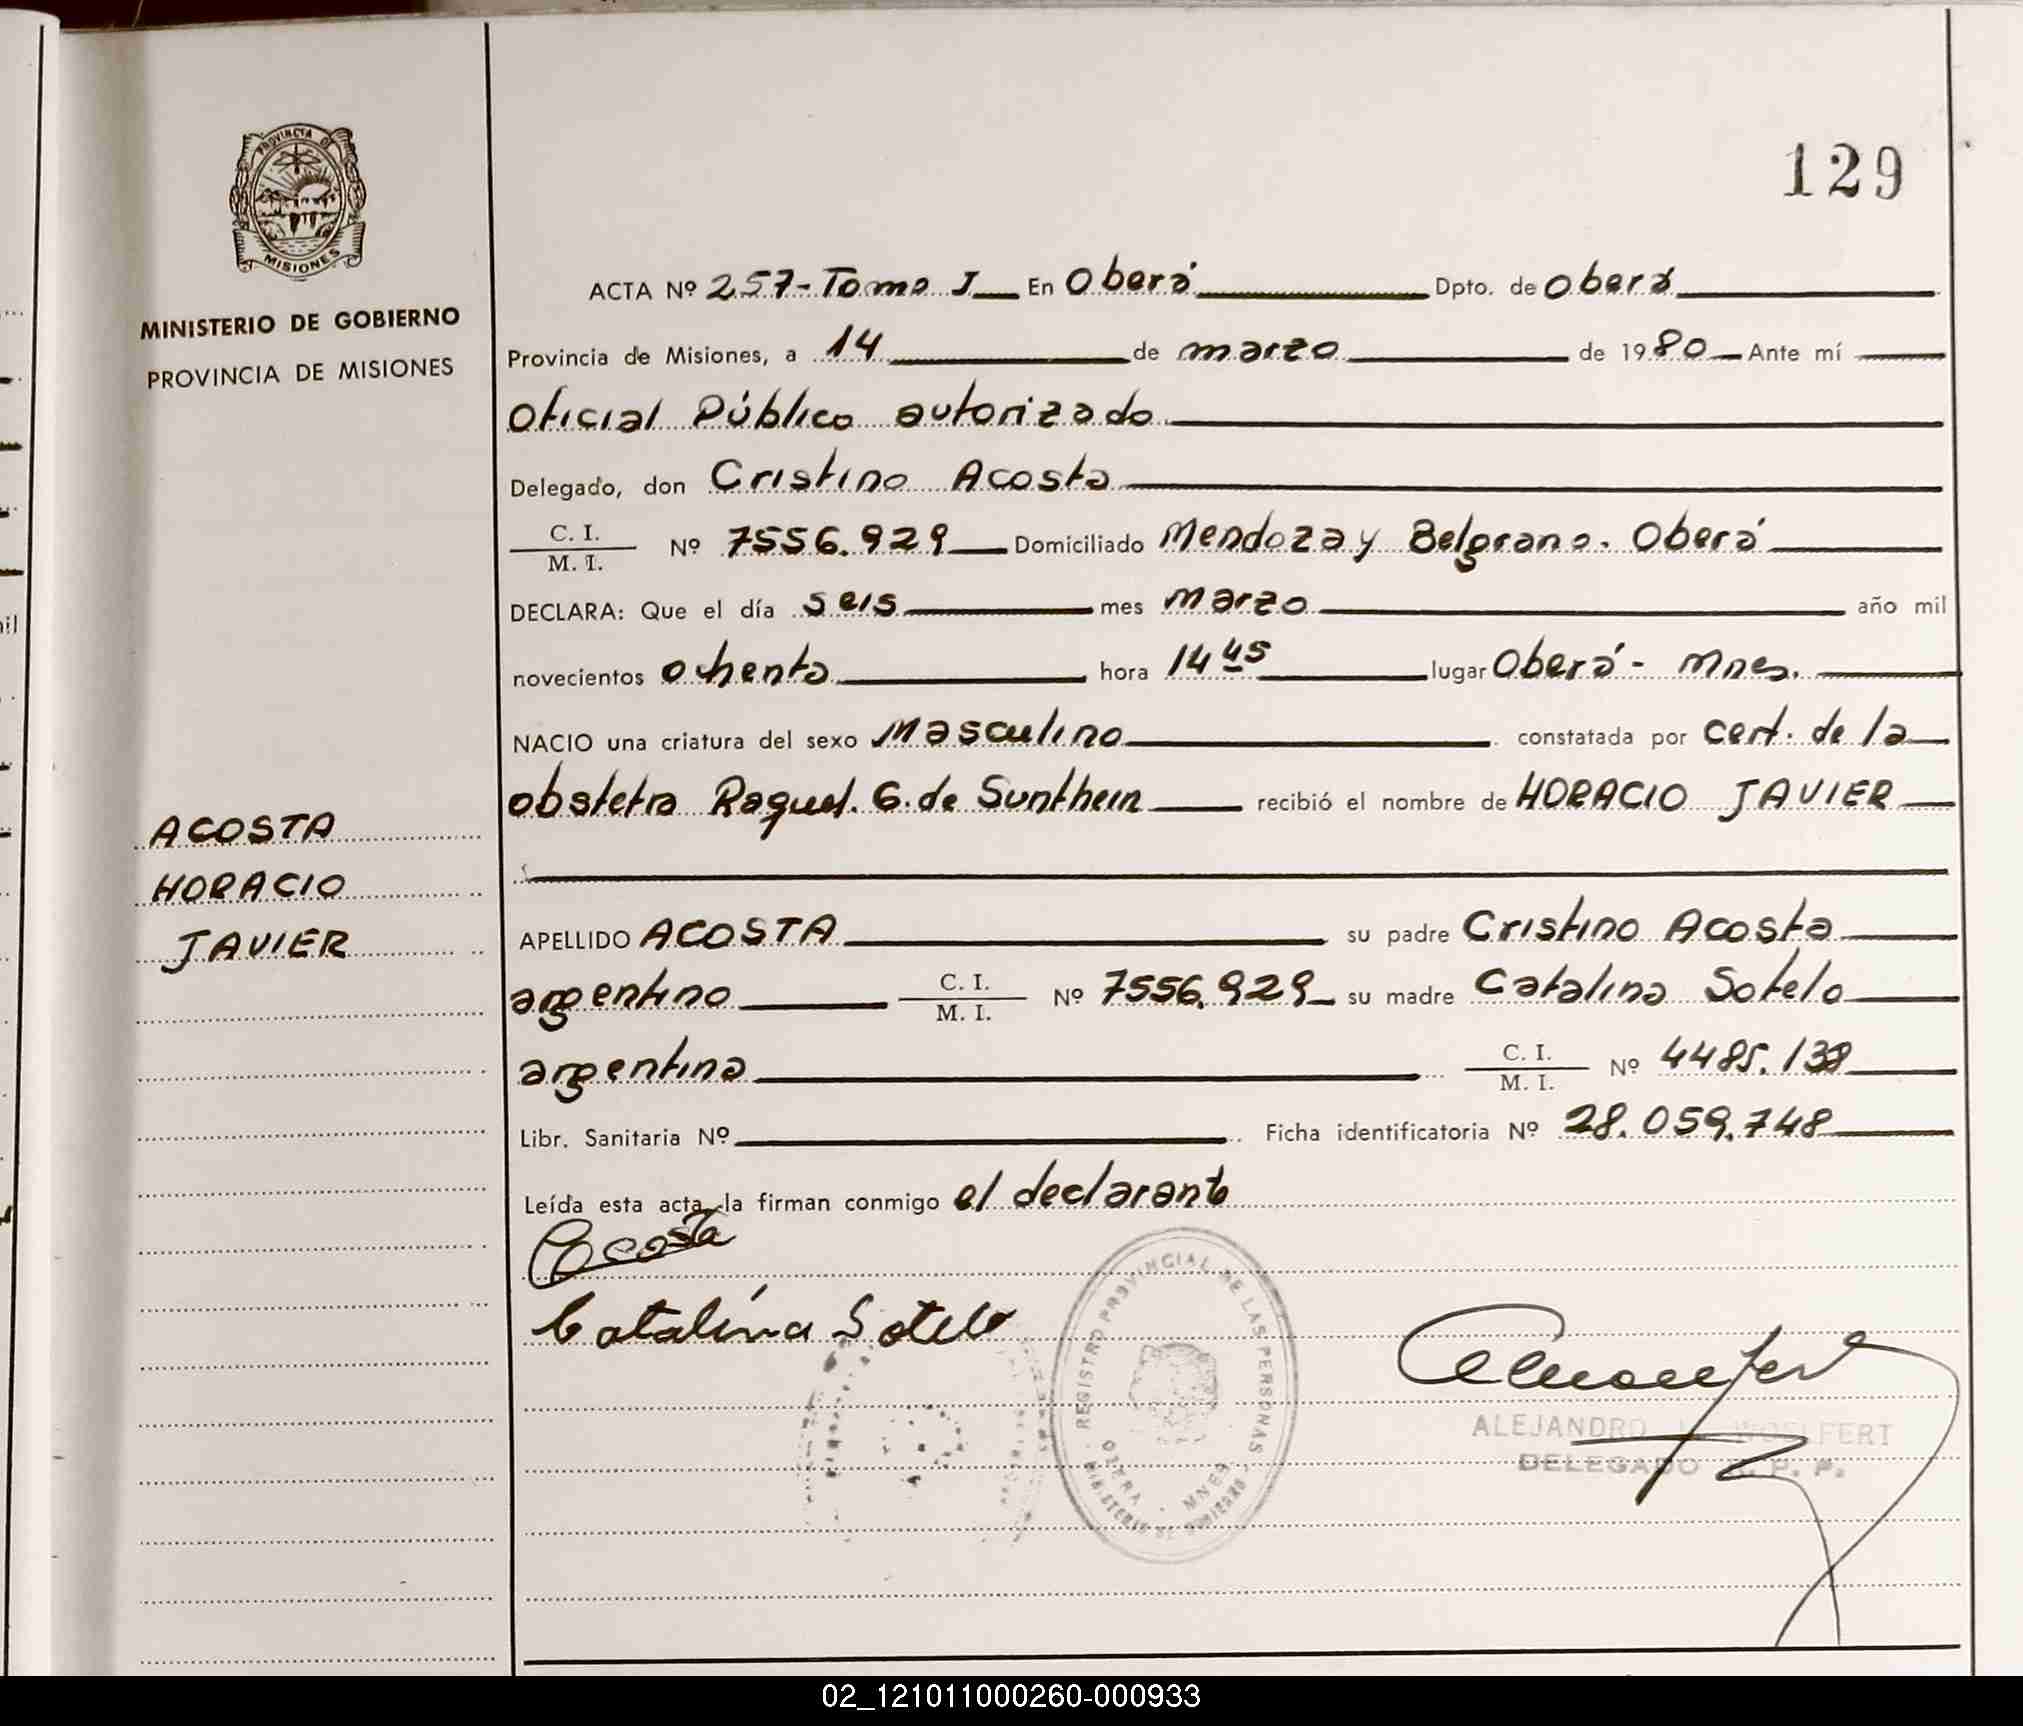 129
PROVINCIA DE
MISIONES
MINISTERIO DE GOBIERNO
PROVINCIA DE MISIONES
ACTA Nº 257-Tomo I En Oberá Dpto. de Oberá
Provincia de Misiones, a 14 de marzo de 1980 Ante mí
Oficial Público autorizado
Delegado, don Cristino Acosta
C. I. / M. I. Nº 7556.929 Domiciliado Mendoza y Belgrano. Oberá
DECLARA: Que el día seis mes marzo año mil
novecientos ochenta hora 14 45 lugar Oberá - Mnes.
NACIO una criatura del sexo Masculino constatada por cert. de la
obstetra Raquel. G. de Sunthein recibió el nombre de HORACIO JAVIER
ACOSTA
HORACIO
JAVIER
APELLIDO ACOSTA su padre Cristino Acosta
argentino C. I. / M. I. Nº 7556.929 su madre Catalina Sotelo
argentina C. I. / M. I. Nº 4485.138
Libr. Sanitaria Nº Ficha identificatoria Nº 28.059.748
Leída esta acta, la firman conmigo el declarante
Acosta
Catalina Sotelo
REGISTRO PROVINCIAL DE LAS PERSONAS
OBERA - MNES
MINISTERIO DE GOBIERNO
ALEJANDRO WOELFERT
DELEGADO R. P. P.
02_121011000260-000933